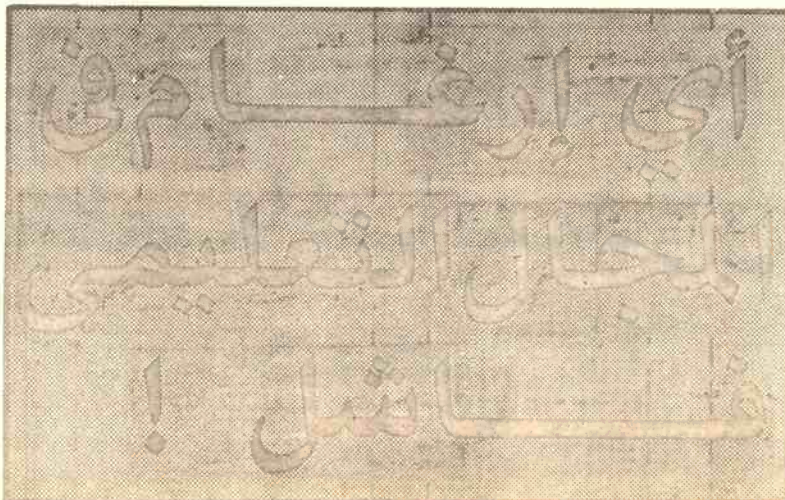 أي إرغام في
المجال التعليمي
فاشل !